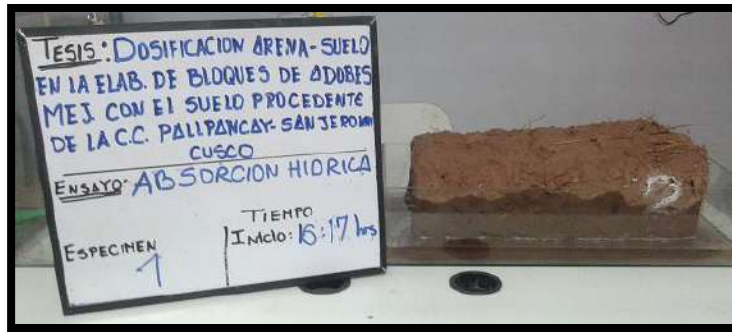 TESIS: DOSIFICACION ARENA-SUELO
EN LA ELAB. DE BLOQUES DE ADOBES
MEJ. CON EL SUELO PROCEDENTE
DE LA C.C. PALLPANCAY-SAN JERONIMO
CUSCO
ENSAYO: ABSORCION HIDRICA
TIEMPO
ESPECIMEN
Inicio: 16:17 hrs
1